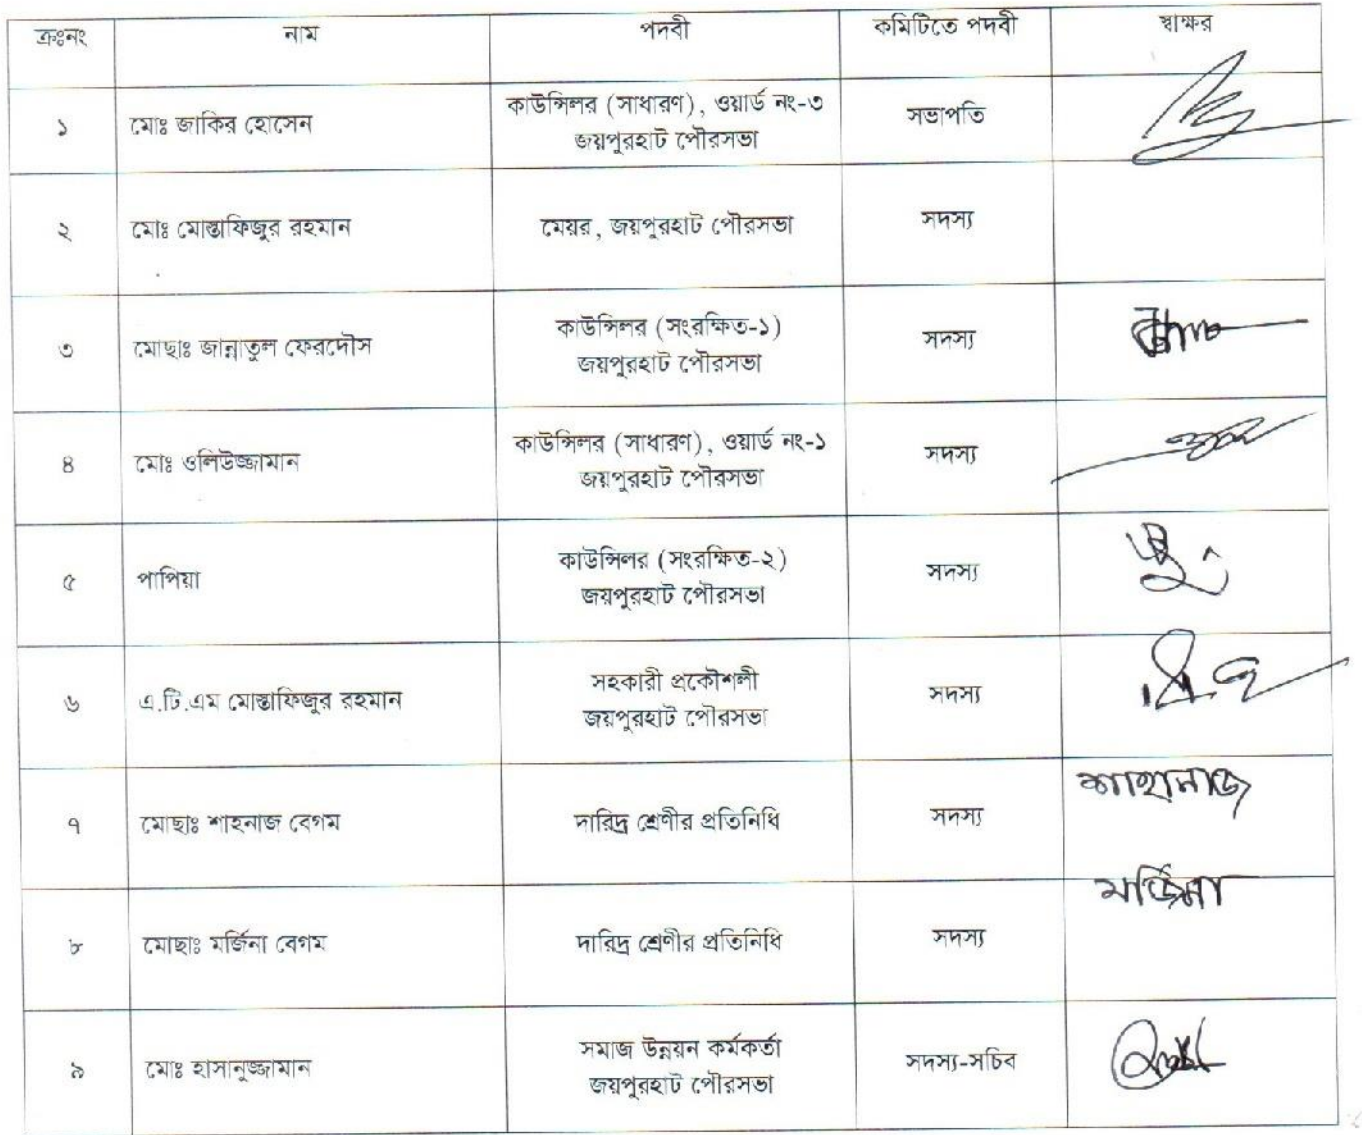 ক্রঃনং নাম পদবী কমিটিতে পদবী স্বাক্ষর
১ মোঃ জাকির হোসেন কাউন্সিলর (সাধারণ), ওয়ার্ড নং-৩ সভাপতি
জয়পুরহাট পৌরসভা
২ মোঃ মোস্তাফিজুর রহমান মেয়র, জয়পুরহাট পৌরসভা সদস্য
৩ মোছাঃ জান্নাতুল ফেরদৌস কাউন্সিলর (সংরক্ষিত-১) সদস্য
জয়পুরহাট পৌরসভা
৪ মোঃ ওলিউজ্জামান কাউন্সিলর (সাধারণ), ওয়ার্ড নং-১ সদস্য
জয়পুরহাট পৌরসভা
৫ পাপিয়া কাউন্সিলর (সংরক্ষিত-২) সদস্য
জয়পুরহাট পৌরসভা
৬ এ.টি.এম মোস্তাফিজুর রহমান সহকারী প্রকৌশলী সদস্য
জয়পুরহাট পৌরসভা
৭ মোছাঃ শাহনাজ বেগম দারিদ্র শ্রেণীর প্রতিনিধি সদস্য শাহানাজ
৮ মোছাঃ মর্জিনা বেগম দারিদ্র শ্রেণীর প্রতিনিধি সদস্য মর্জিনা
৯ মোঃ হাসানুজ্জামান সমাজ উন্নয়ন কর্মকর্তা সদস্য-সচিব
জয়পুরহাট পৌরসভা